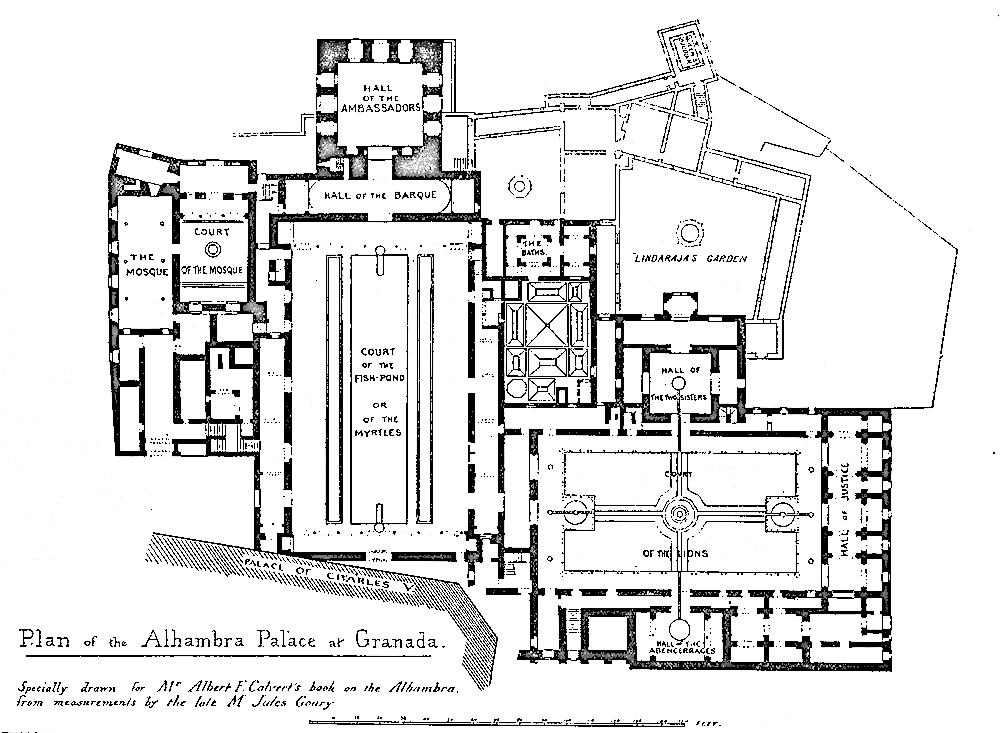 HALL
OF THE
AMBASSADORS
HALL OF THE BARQUE
COURT
OF THE MOSQUE
THE
MOSQUE
THE
BATHS
LINDARAJA'S GARDEN
COURT
OF THE
FISH-POND
OR
OF THE
MYRTLES
HALL OF
THE TWO SISTERS
COURT
OF THE LIONS
HALL OF JUSTICE
HALL OF THE
ABENCERRAGES
PALACE OF CHARLES V.
Plan of the Alhambra Palace at Granada.
Specially drawn for Mr Albert F. Calvert's book on the Alhambra.
from measurements by the late M Jules Goury
FEET.